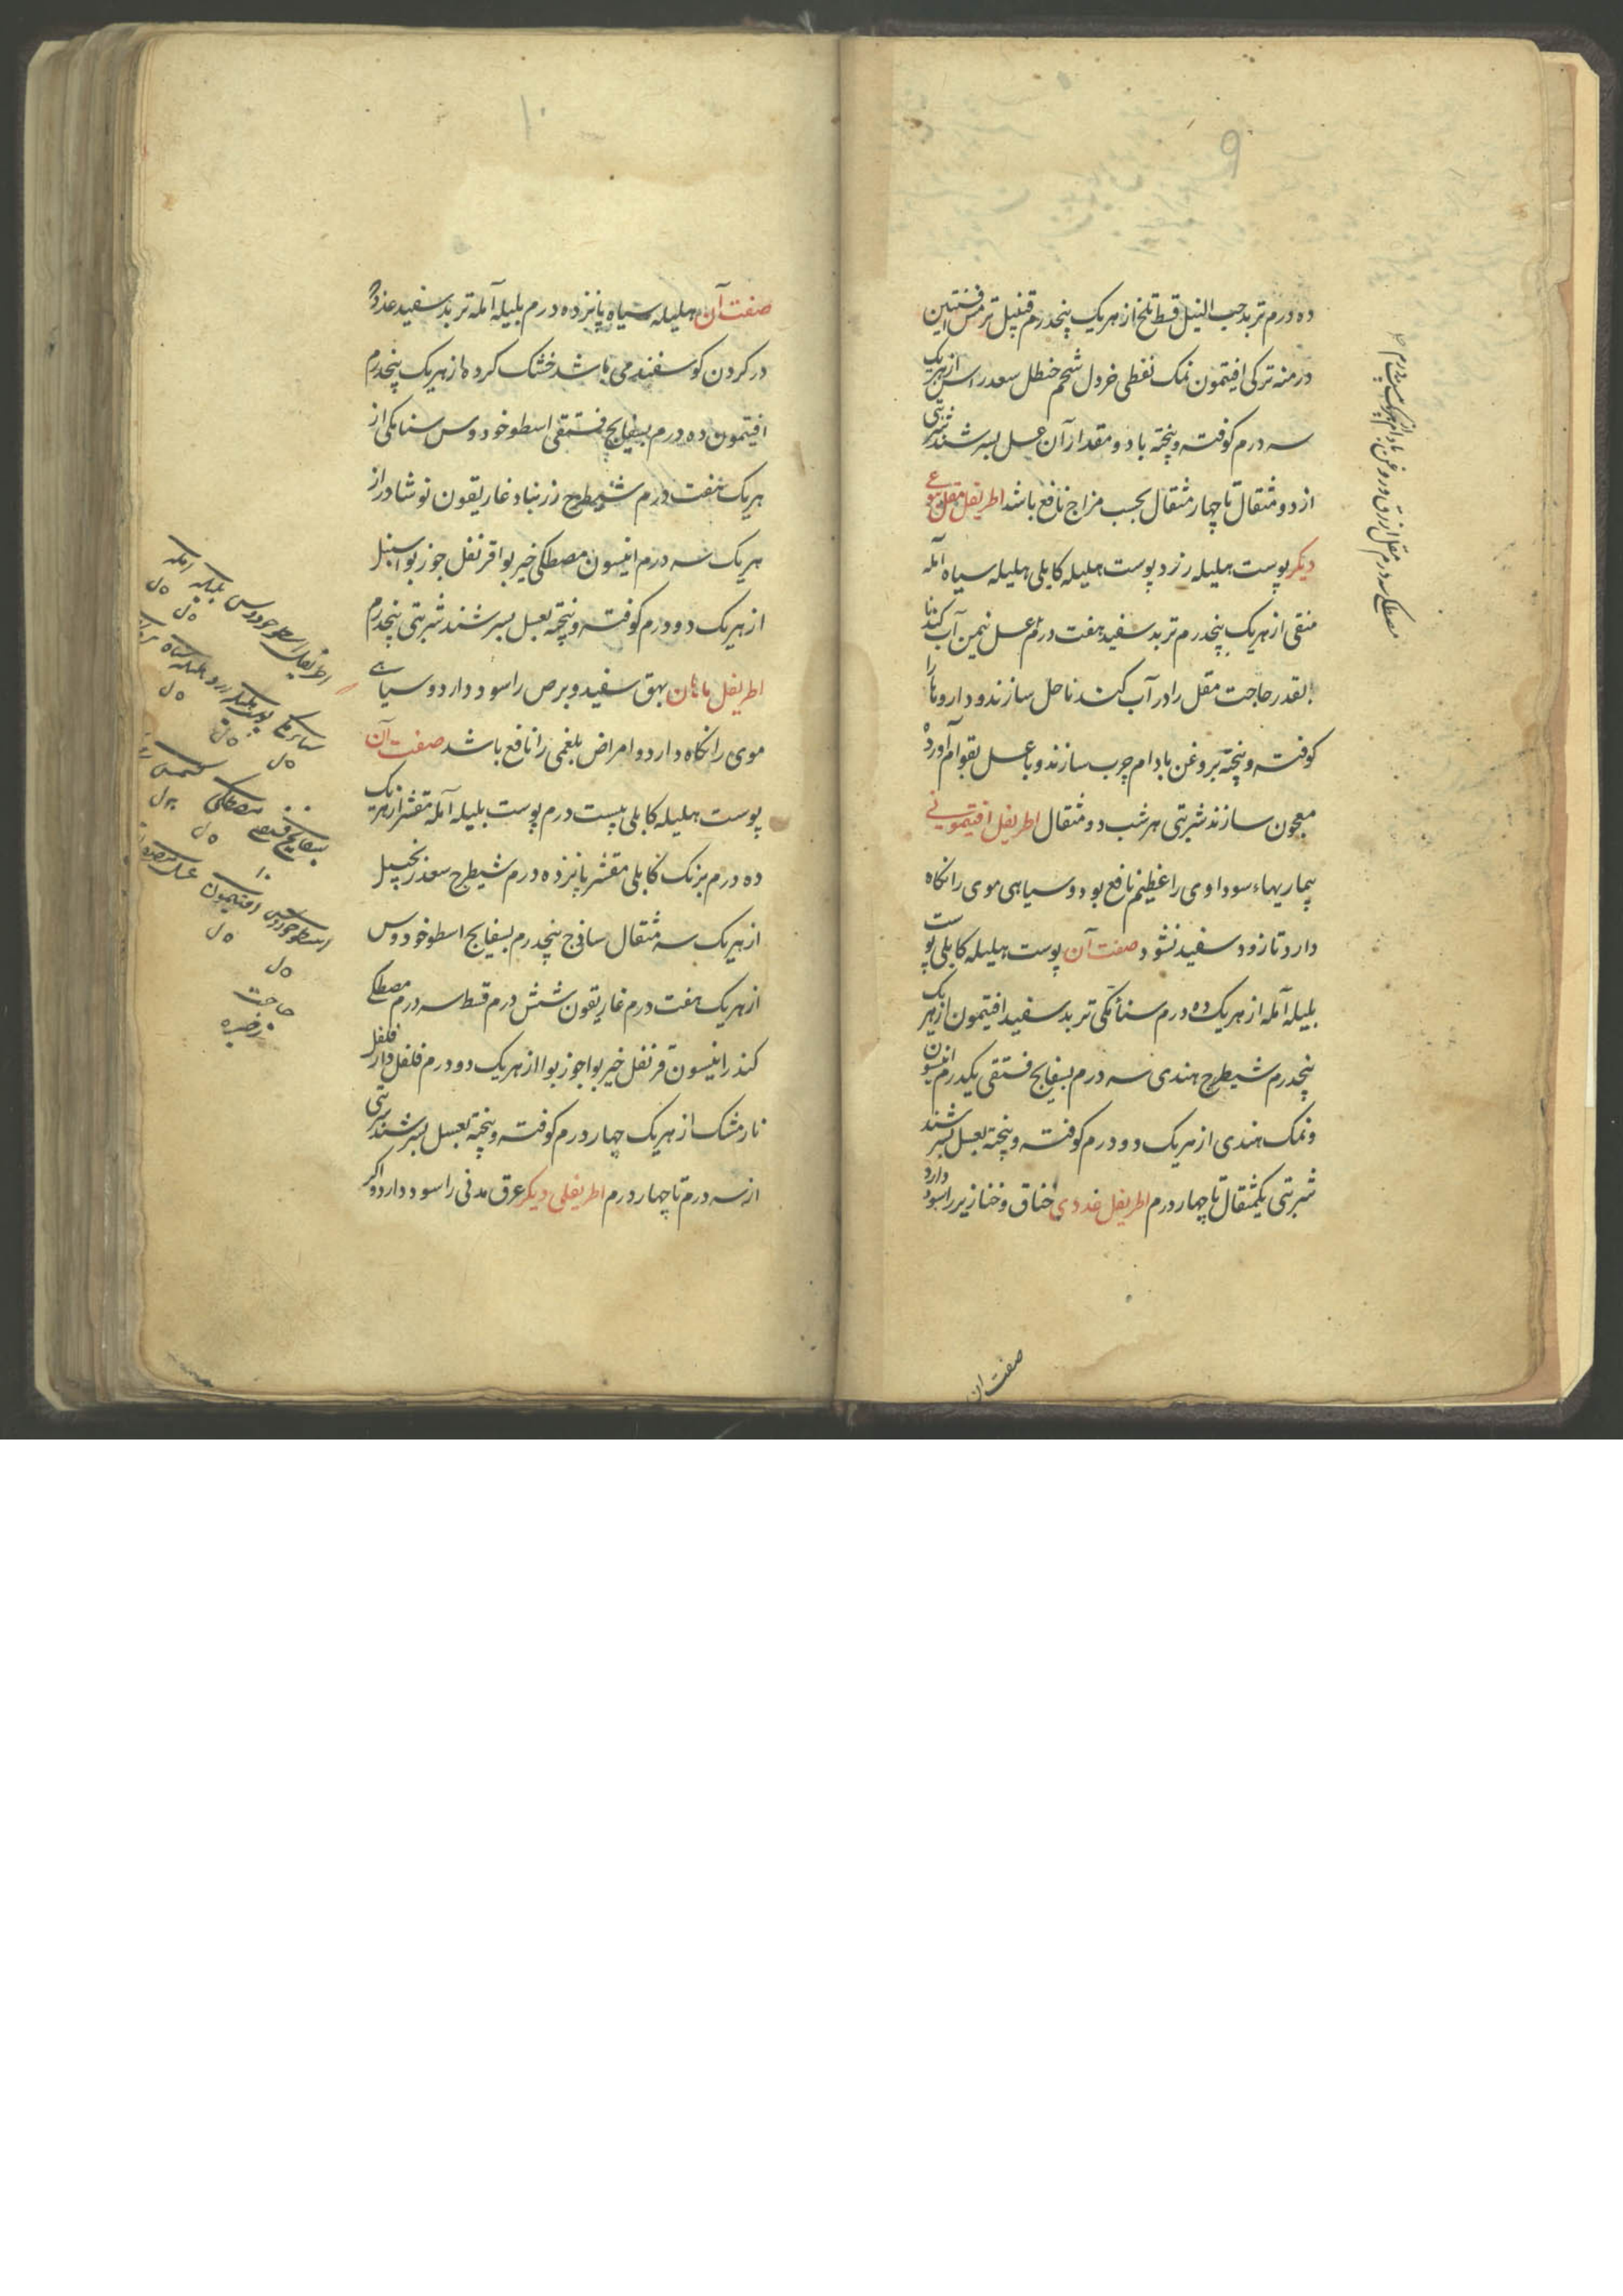 ۹
ده درم تربد حب النیل قسط تلخ از هریک پنجدرم قنبیل ترمس افسنتین
درمنه ترکی افتیمون نمک نفطی خردل شحم حنظل سعد راسن از هریک
سه درم کوفته و پنجته با دو مقدار آن عسل بسرشند شربتی
از دو مثقال تا چهار مثقال بحسب مزاج نافع باشد اطریفل مقل نوعی
دیگر پوست هلیله زرد پوست هلیله کابلی هلیله سیاه آمله
منقی از هریک پنجدرم تربد سفید هفت درم عسل نیمن آب کندنا
بقدر حاجت مقل را در آب کندنا حل سازند و داروها را
کوفته و پنجته بروغن بادام چرب سازند و با عسل بقوام آورده
معجون سازند شربتی هر شب دو مثقال اطریفل افتیمونی
بیماریهاء سوداوی را عظیم نافع بود و سیاهی موی را نکاه
دارد تا زود سفید نشود صفت آن پوست هلیله کابلی پوست
بلیله آمله از هریک ده درم سنأمکی تربد سفید افتیمون از هریک
پنجدرم شیطرج هندی سه درم بسفایج فستقی یکدرم انیسون
و نمک هندی از هریک دو درم کوفته و پنجته بعسل بسرشند
شربتی یکمثقال تا چهار درم اطریفل غددی خناق و خنازیر را سود دارد
صفت ان
۱۰
صفت آن هلیله سیاه پانزده درم بلیله آمله تربد سفید غدد
در کردن کوسفند می باشد خشک کرده از هریک پنجدرم
افتیمون ده درم بسفایج فستقی اسطوخودوس سنامکی از
هریک هفت درم شیطرج زرنباد غاریقون نوشادر از
هریک سه درم انیسون مصطکی خیربوا قرنفل جوزبوا سنبل
از هریک دو درم کوفته و پنجته بعسل بسرشند شربتی پنجدرم
اطریفل باهان بهق سفید و برص را سود دارد و سیاهی
موی را نکاه دارد و امراض بلغمی را نافع باشد صفت آن
پوست هلیله کابلی بیست درم پوست بلیله آمله مقشر از هریک
ده درم بزنک کابلی مقشر پانزده درم شیطرج سعد زنجبیل
از هریک سه مثقال ساذج پنجدرم بسفایج اسطوخودوس
از هریک هفت درم غاریقون شش درم قسط سه درم مصطکی
کندر انیسون قرنفل خیربوا جوزبوا از هریک دو درم فلفل دارفلفل
نارمشک از هریک چهار درم کوفته و پنجته بعسل بسرشند شربتی
از سه درم تا چهار درم اطریفلی دیکر عرق مدنی را سود دارد و اکر
اطریفل اسطوخودوس بلیله امله
بسفایج فستقی مصطکی کشمش
اسطوخودوس افتیمون
حاجت